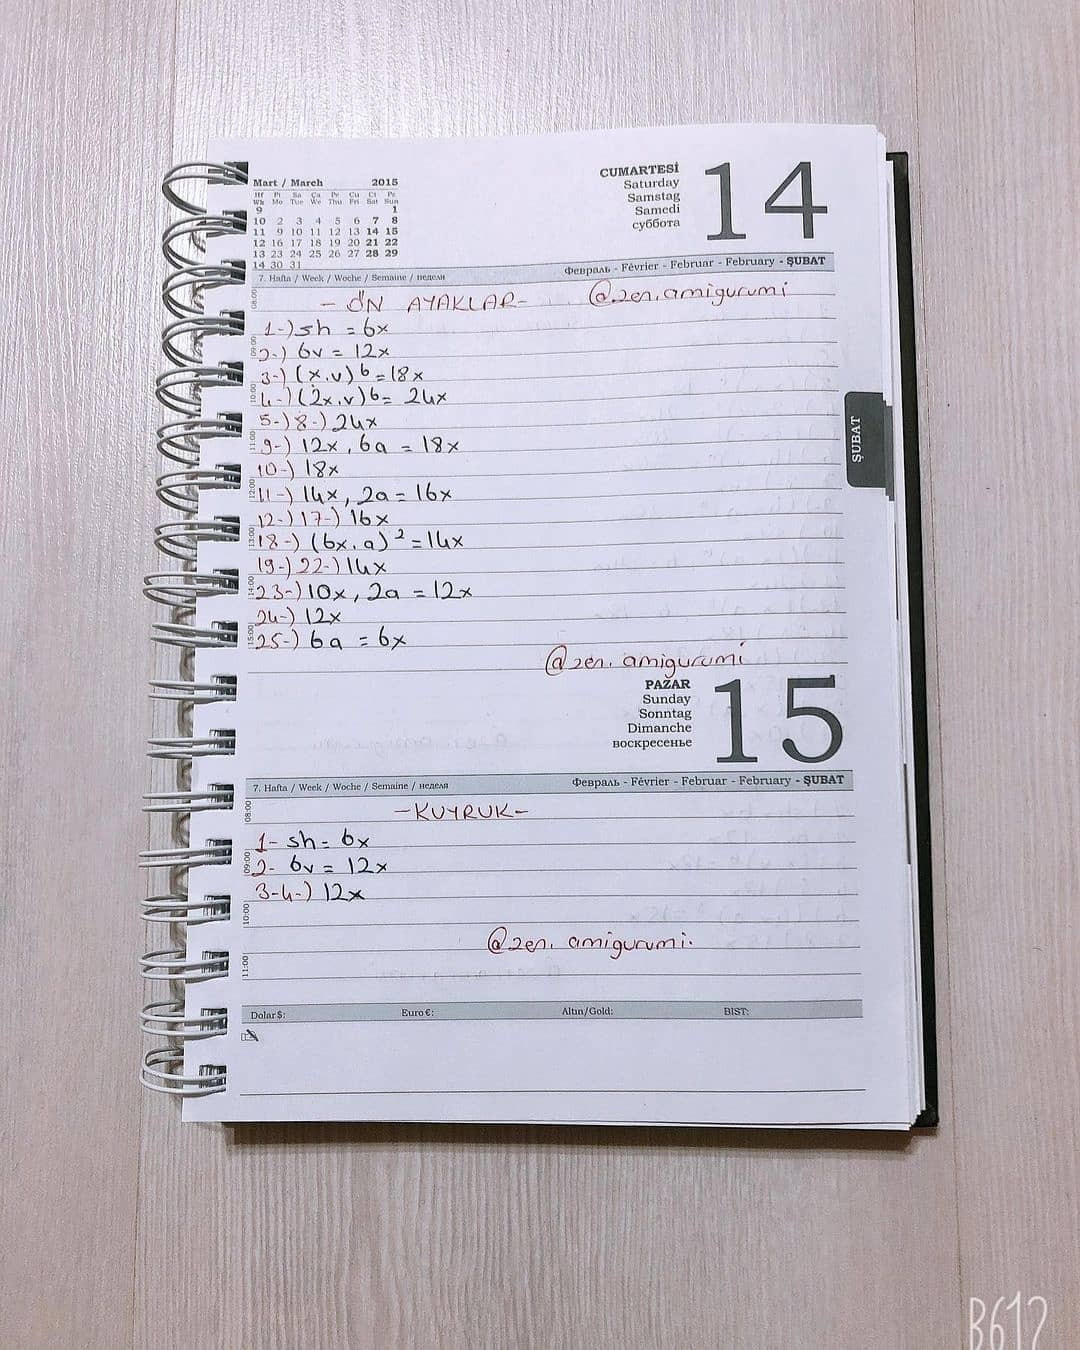 Mart / March 2015
Hf Pt Sa Ça Pe Cu Ct Pz
Wk Mo Tue We Thu Fri Sat Sun
9 1
10 2 3 4 5 6 7 8
11 9 10 11 12 13 14 15
12 16 17 18 19 20 21 22
13 23 24 25 26 27 28 29
14 30 31
CUMARTESİ
Saturday
Samstag
Samedi
суббота
14
7. Hafta / Week / Woche / Semaine / неделя
Февраль - Février - Februar - February - ŞUBAT
08:00
- ÖN AYAKLAR -
@zen.amigurumi
1-) sh = 6x
09:00
2-) 6v = 12x
3-) (x.v)6 = 18x
10:00
4-) (2x.v)6 = 24x
5-) 8-) 24x
11:00
9-) 12x, 6a = 18x
10-) 18x
12:00
11-) 14x, 2a = 16x
12-) 17-) 16x
13:00
18-) (6x.a)2 = 14x
19-) 22-) 14x
14:00
23-) 10x, 2a = 12x
24-) 12x
15:00
25-) 6a = 6x
@zen.amigurumi
ŞUBAT
PAZAR
Sunday
Sonntag
Dimanche
воскресенье
15
7. Hafta / Week / Woche / Semaine / неделя
Февраль - Février - Februar - February - ŞUBAT
08:00
- KUYRUK -
1- sh = 6x
09:00
2- 6v = 12x
3-4-) 12x
10:00
@zen.amigurumi.
11:00
Dolar $: Euro €: Altın/Gold: BIST:
B612